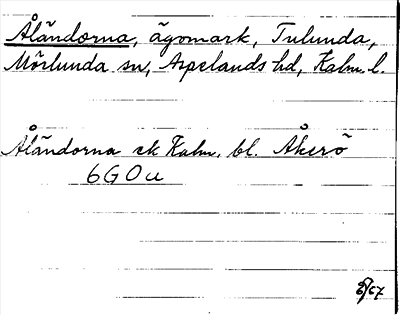 Åländorna, ägomark, Tulunda,
Mörlunda sn, Aspelands hd, Kalm. l.
Åländorna ek Kalm. bl. Åkerö
6 G 0 u
67